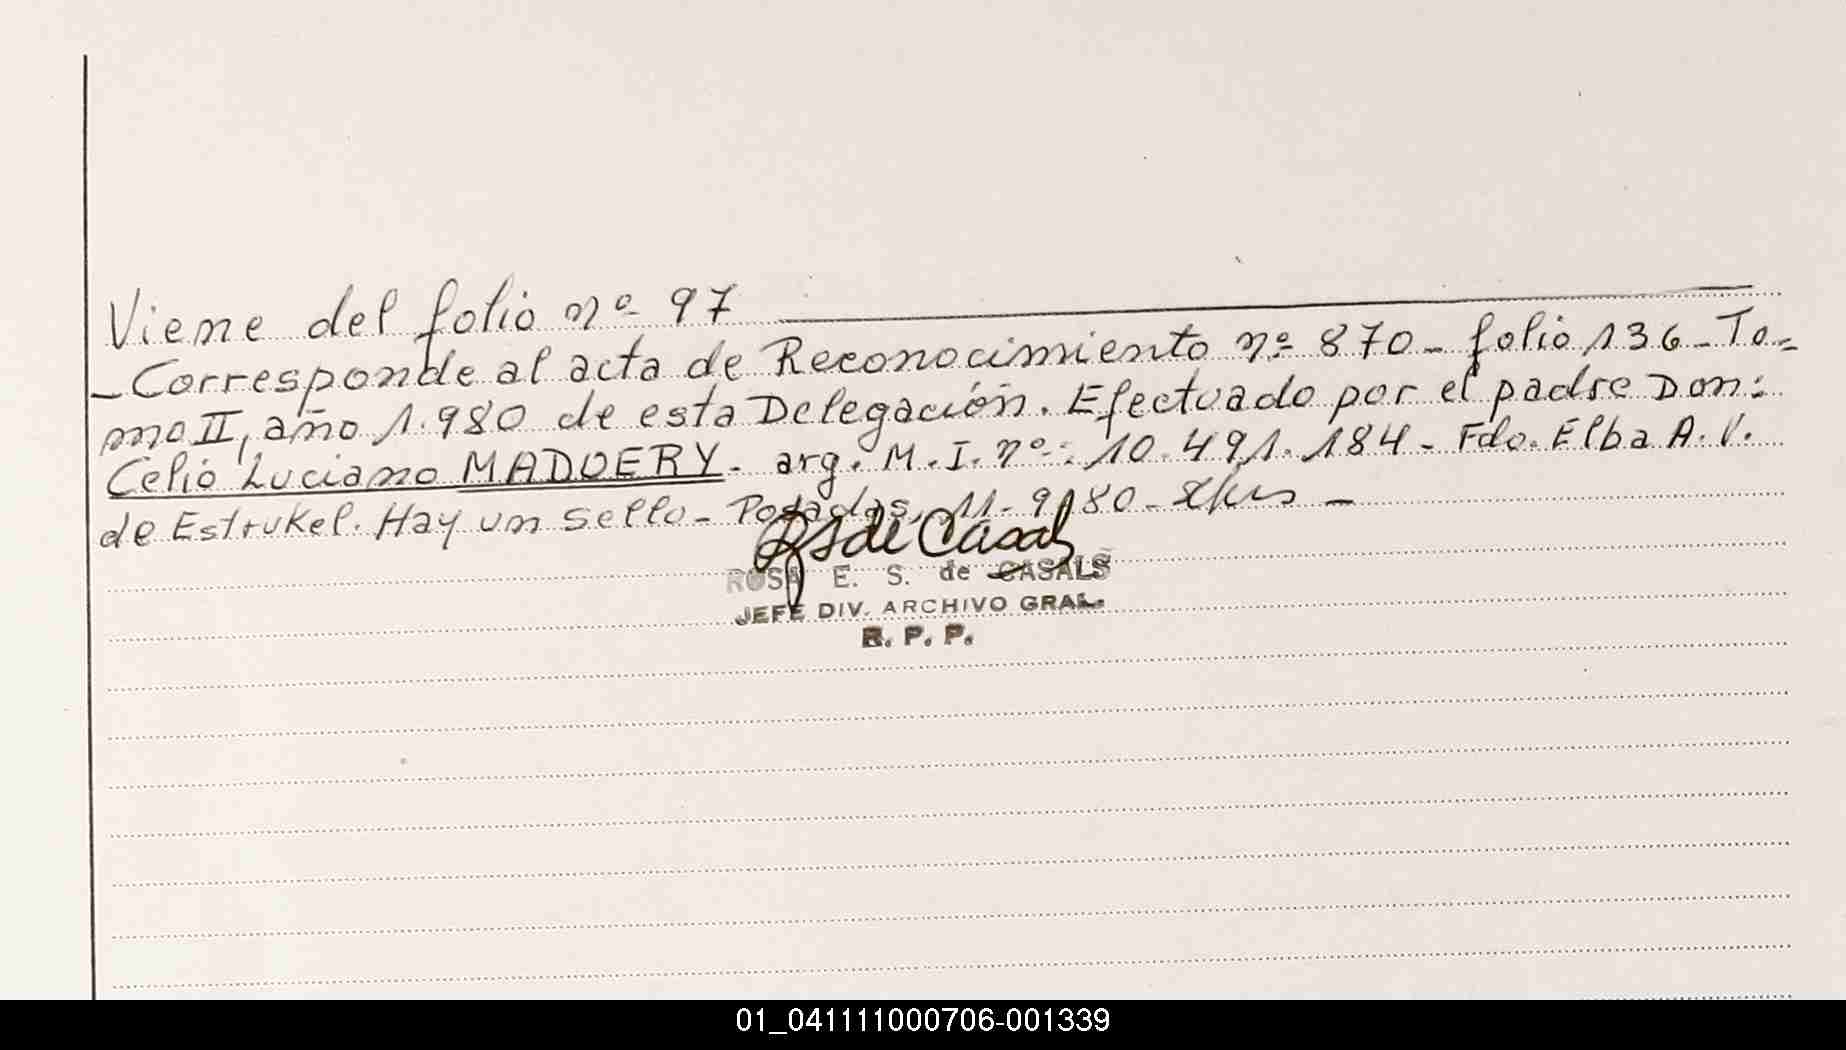 Viene del folio nº 97
- Corresponde al acta de Reconocimiento nº 870 - folio 136 - To=
mo II, año 1.980 de esta Delegación. Efectuado por el padre Don:
Celio Luciano MADOERY - arg. M.I. nº: 10.491.184 - Fdo. Elba A. V.
de Estrukel. Hay un sello - Posadas, 11-9-80 -
RS de Casals
ROSA E. S. de CASALS
JEFE DIV. ARCHIVO GRAL.
R. P. P.
01_041111000706-001339